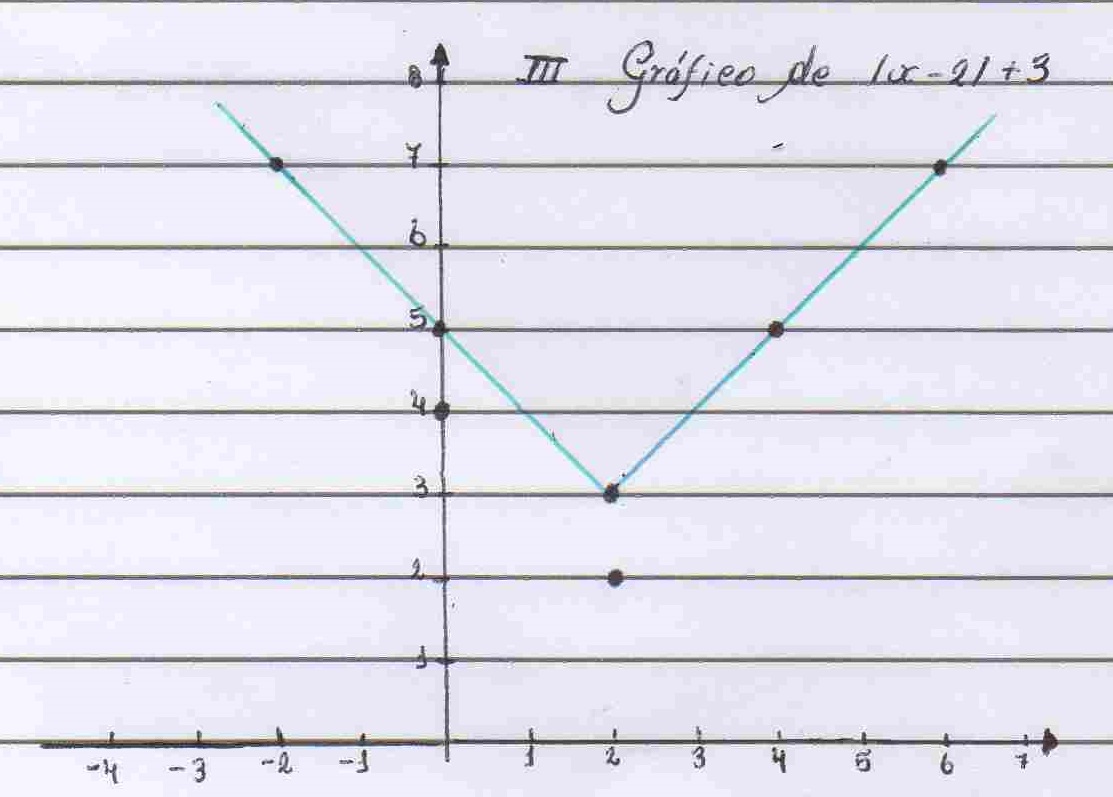 III Gráfico de |x-2|+3
8
7
6
5
4
3
2
1
-4 -3 -2 -1 1 2 3 4 5 6 7